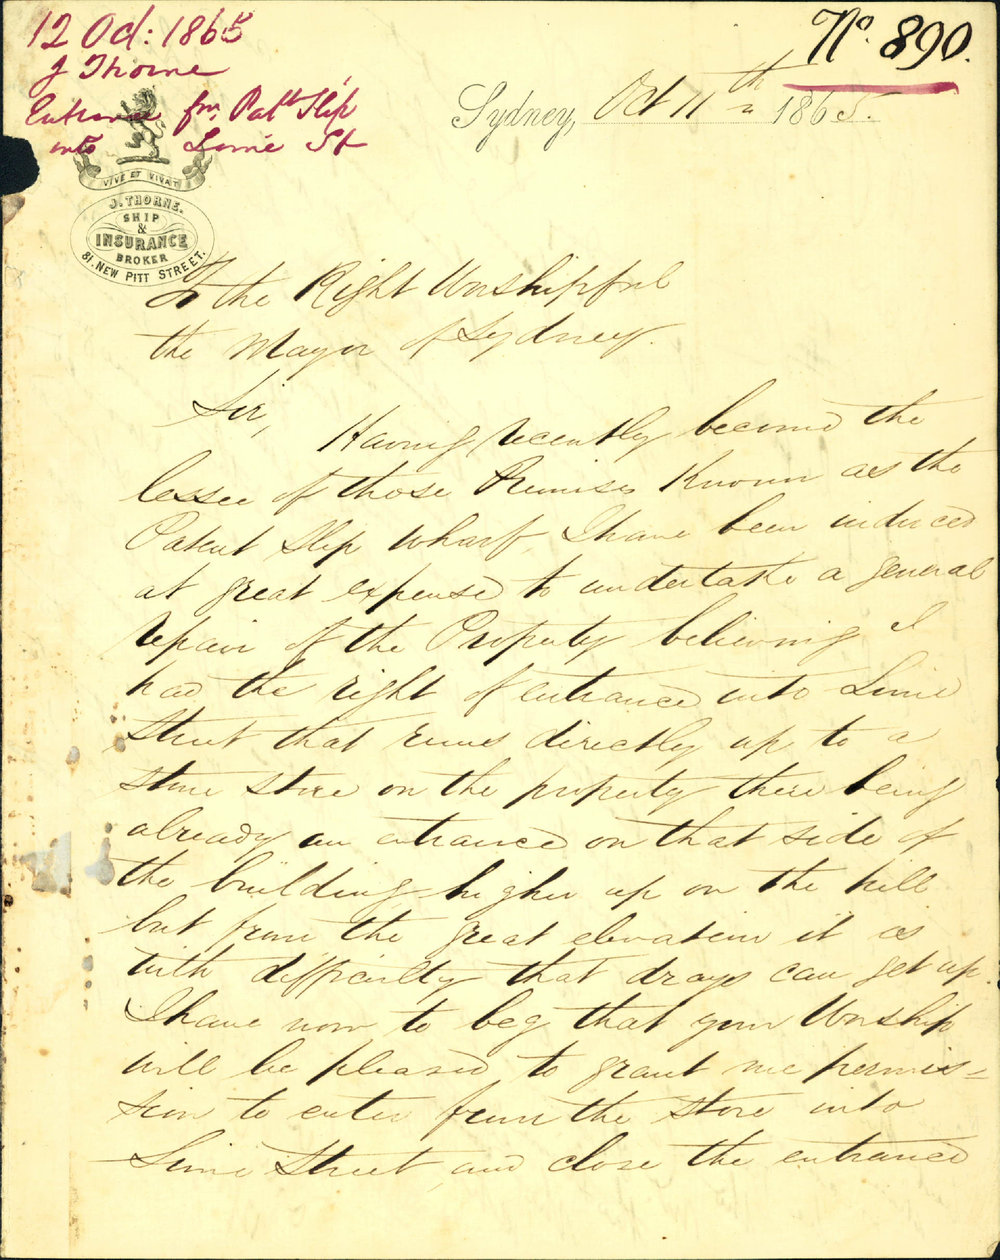 12 Oct: 1865
J Thorne
Entrance fm. Patt Slip
into Lime St
No. 890.
Sydney, Oct 11th 1865.
VIVE ET VIVAT
J. THORNE.
SHIP
&
INSURANCE
BROKER
81. NEW PITT STREET.
To the Right Worshipful
the Mayor of Sydney.
Sir,
Having recently become the
lessee of those Premises known as the
Patent Slip Wharf I have been induced
at great expense to undertake a general
repair of the Property believing I
had the right of entrance into Lime
Street that runs directly up to a
stone store on the property there being
already an entrance on that side of
the building higher up on the hill
but from the great elevation it is
with difficulty that drays can get up.
I have now to beg that your Worship
will be pleased to grant me permis=
sion to enter from the store into
Lime Street and close the entrance